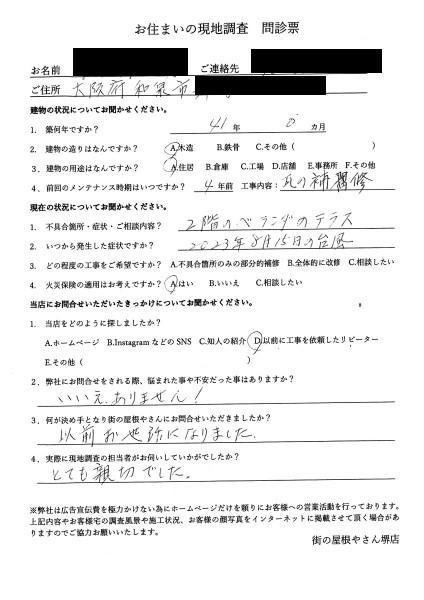 お住まいの現地調査 問診票
お名前 ご連絡先
ご住所 大阪府和泉市
建物の状況についてお聞かせください。
1. 築何年ですか? 41 年 0 カ月
2. 建物の造りはなんですか? A.木造 B.鉄骨 C.その他( )
3. 建物の用途はなんですか? A.住居 B.倉庫 C.工場 D.店舗 E.事務所 F.その他
4. 前回のメンテナンス時期はいつですか? 4 年前 工事内容: 瓦の補修
現在の状況についてお聞かせください。
1. 不具合箇所・症状・ご相談内容? 2階のベランダのテラス
2. いつから発生した症状ですか? 2023年8月15日の台風
3. どの程度の工事をご希望ですか? A.不具合箇所のみの部分的補修 B.全体的に改修 C.相談したい
4. 火災保険の適用はお考えですか? A.はい B.いいえ C.相談したい
当店にお問合せいただいたきっかけについてお聞かせください。
1. 当店をどのように探しましたか?
A.ホームページ B.InstagramなどのSNS C.知人の紹介 D.以前に工事を依頼したリピーター
E.その他( )
2. 弊社にお問合せをされる際、悩まれた事や不安だった事はありますか?
いいえ、ありません!
3. 何が決め手となり街の屋根やさんにお問合せいただきましたか?
以前お世話になりました。
4. 実際に現地調査の担当者がお伺いしていかがでしたか?
とても親切でした。
※弊社は広告宣伝費を極力かけない為にホームページだけを頼りにお客様への営業活動を行っております。
上記内容やお客様宅の調査風景や施工状況、お客様の顔写真をインターネットに掲載させて頂く場合があ
りますのでご協力お願いいたします。
街の屋根やさん堺店